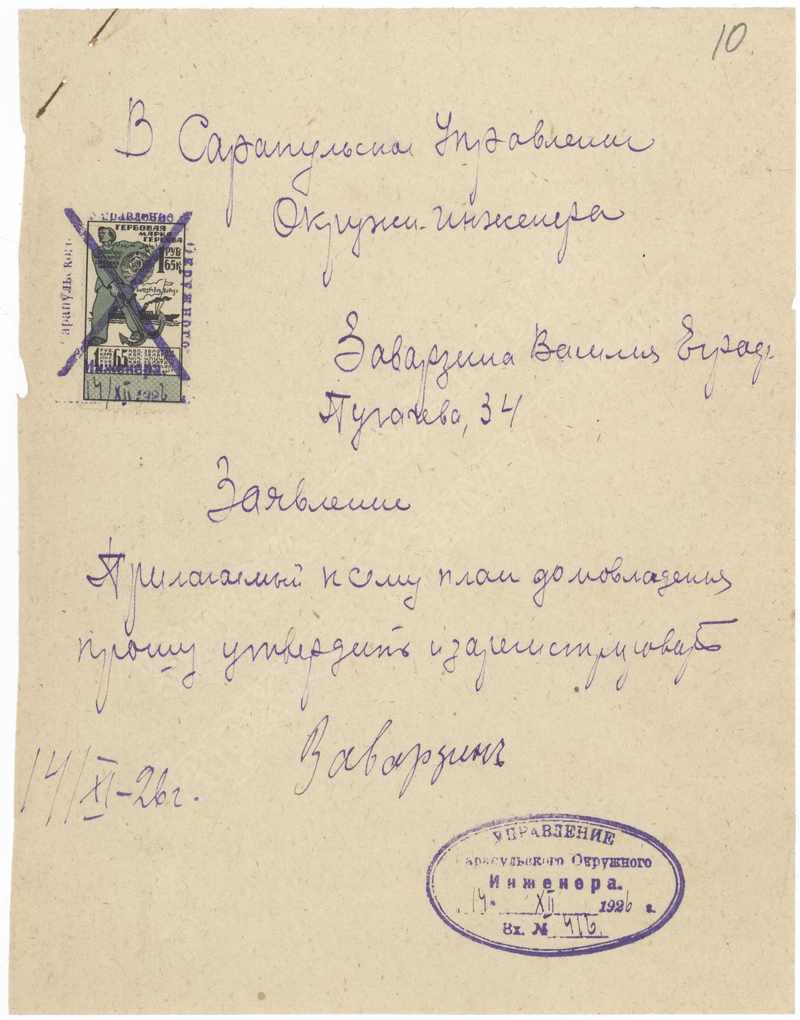 10
В Сарапульское Управление
Окружн. инженера
Управление
ГЕРБОВАЯ
МАРКА
1 РУБ
65 К
Сарапульского
Окружного
1 65
Инженера
14/XII 1926
Заварзина Василия
Пугачева, 34
Заявление
Прилагаемый к сему план домовладенья
прошу утвердить и зарегистрировать
Заварзинъ
14/XI-26 г.
УПРАВЛЕНИЕ
Сарапульского Окружного
Инженера.
14 XII 1926 г.
Вх. № 416.